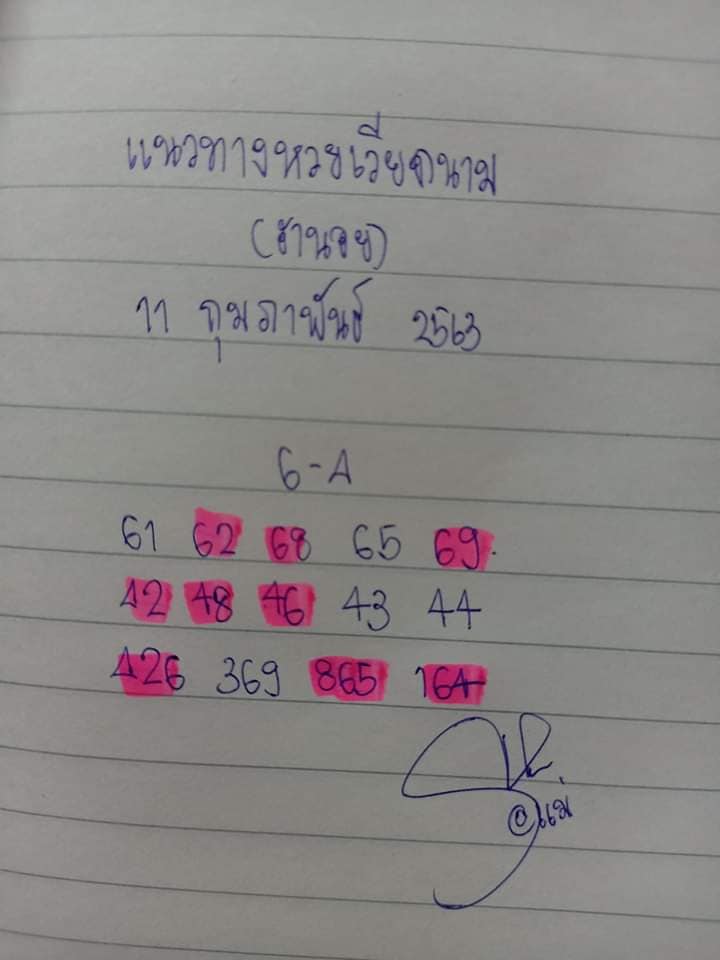 แนวทางหวยเวียดนาม
(ฮานอย)
11 กุมภาพันธ์ 2563
6-4
61 62 68 65 69
42 48 46 43 44
426 369 865 164
@แม่